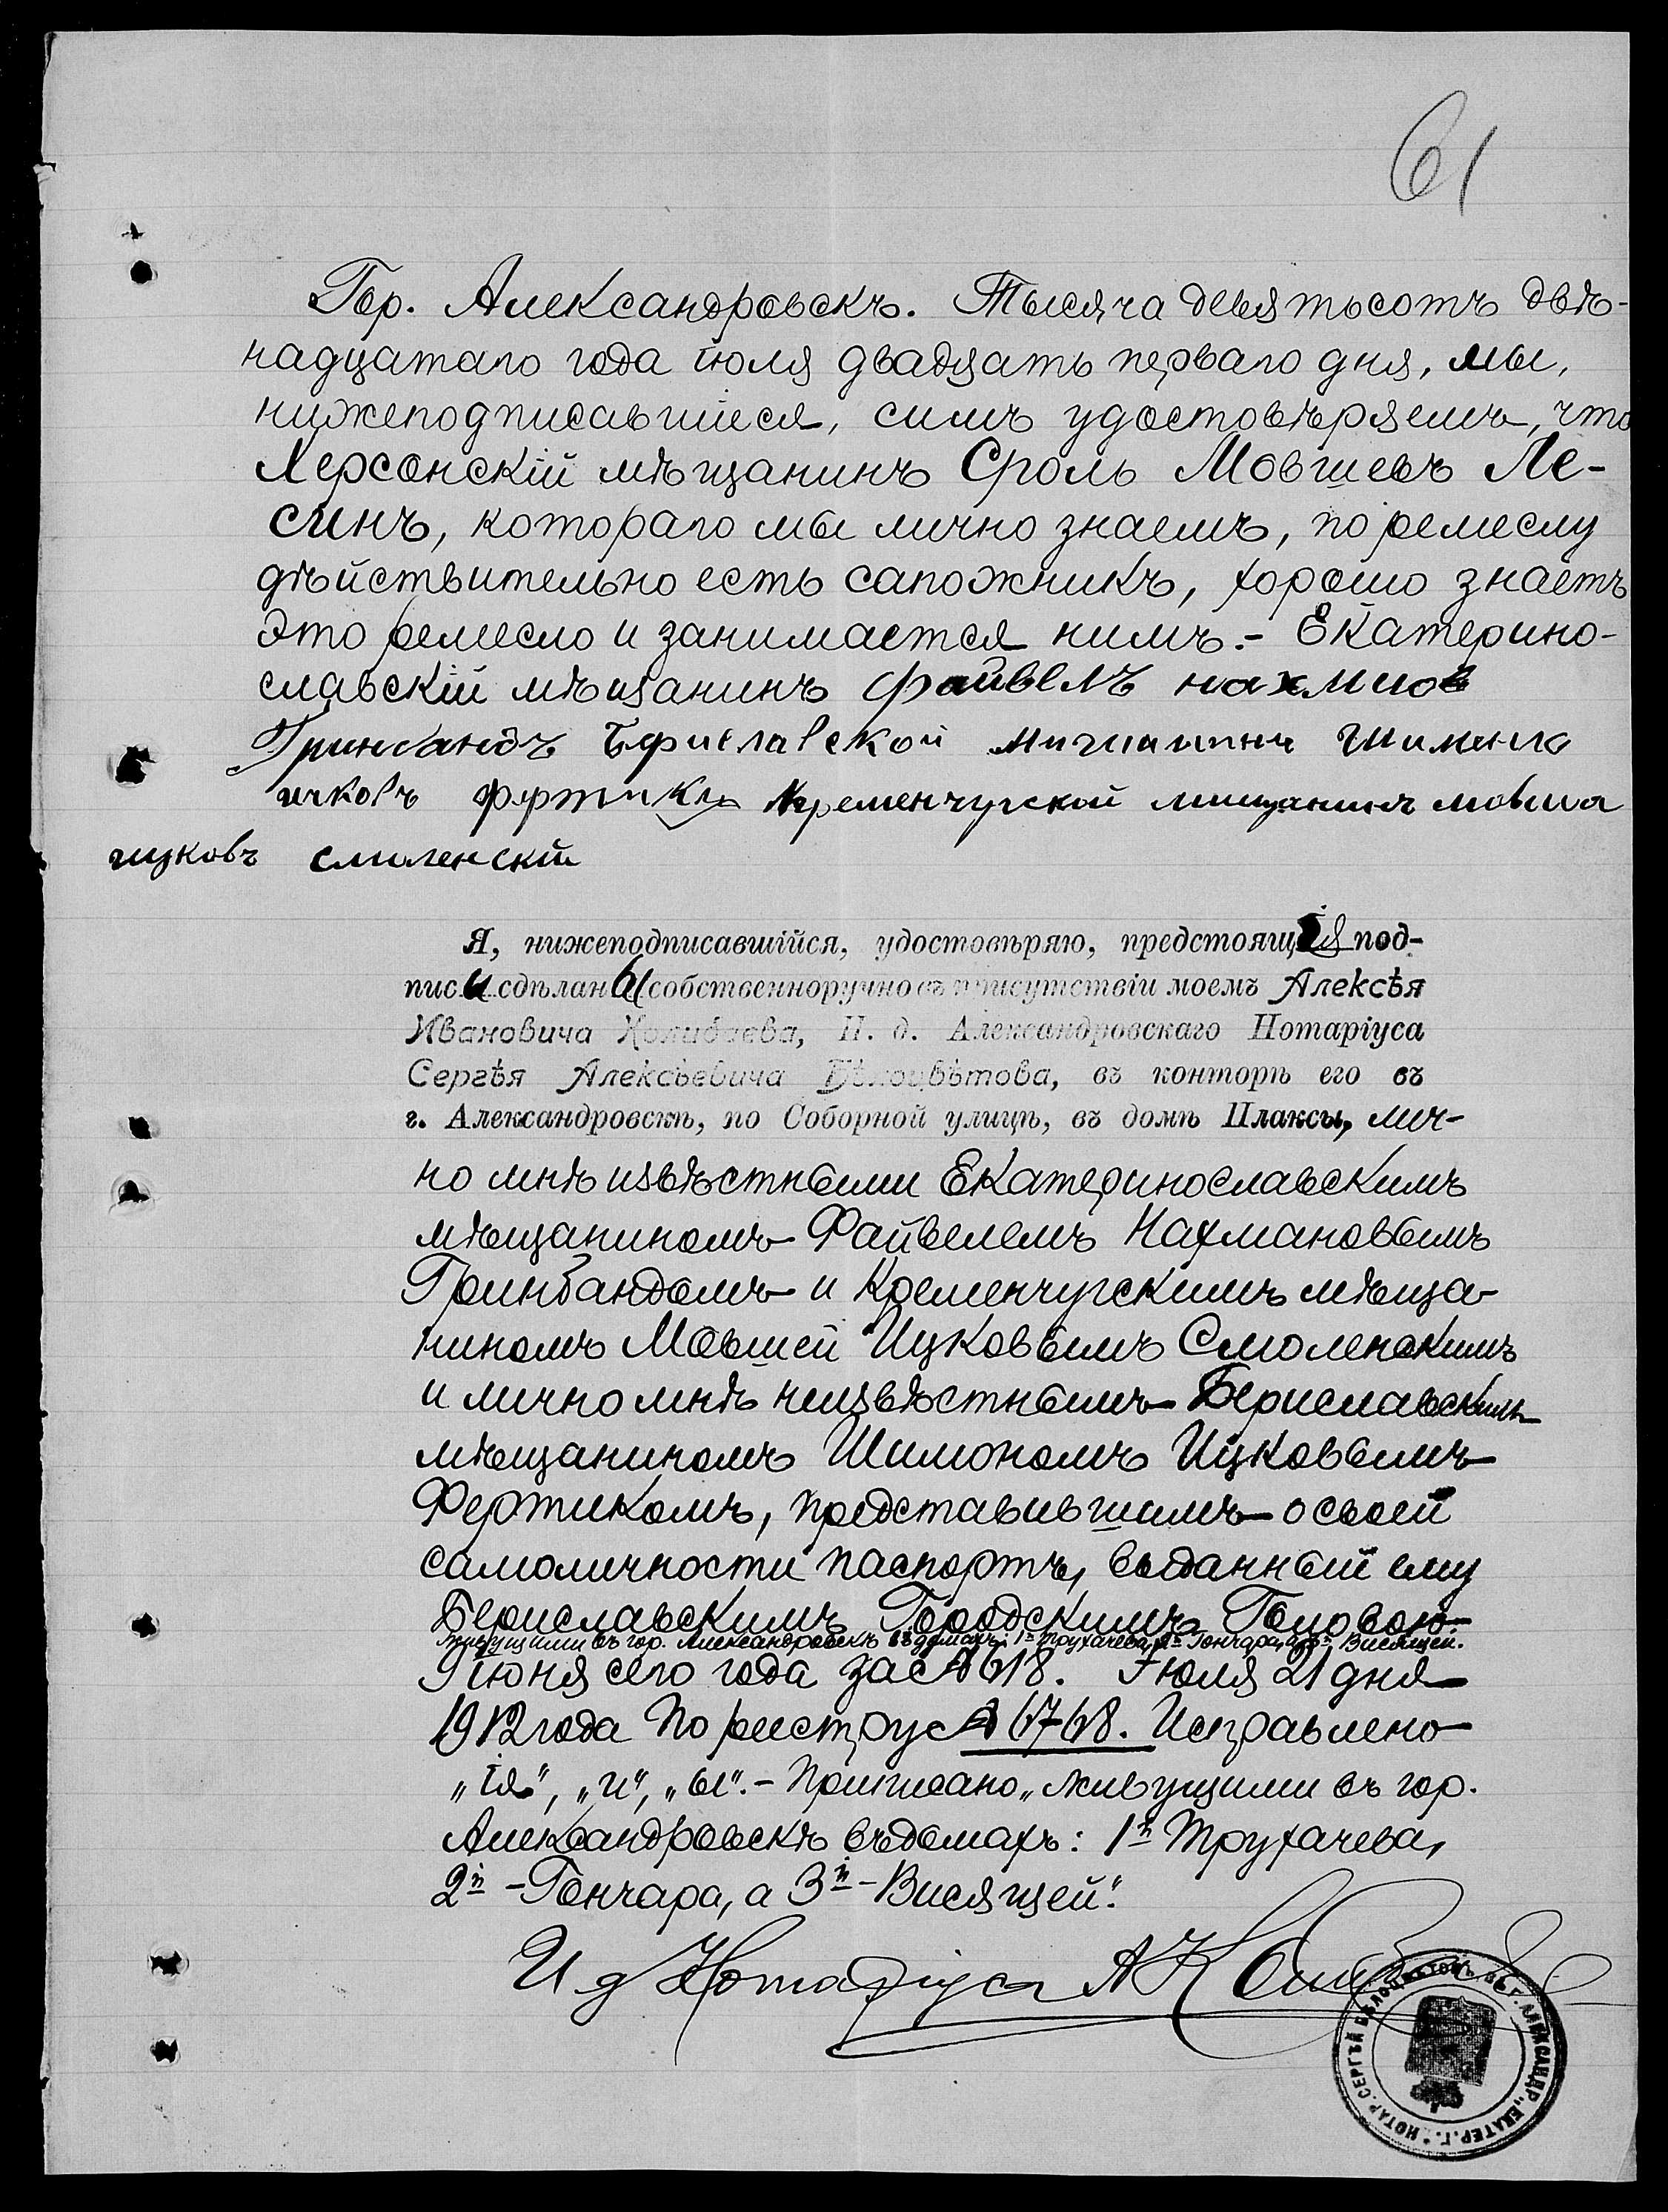 61
Гор. Александровскъ. Тысяча девятьсотъ двѣ-
надцатаго года іюля двадцать перваго дня, мы,
нижеподписавшіеся, симъ удостовѣряемъ, что
Херсонскій мѣщанинъ Сроль Мовшевъ Ле-
синъ, котораго мы лично знаемъ, по ремеслу
дѣйствительно есть сапожникъ, хорошо знаетъ
это ремесло и занимается нимъ.- Екатерино-
славскій мѣщанинъ файвелъ нахмнов
Гринбандъ
Кременчугской мищанинъ мовша
ицковъ смиленскій
Я, нижеподписавшійся, удостовѣряю, предстоящія под-
писи сдѣланы собственноручно въ присутствіи моемъ Алексѣя
Ивановича Холибаева, И. д. Александровскаго Нотаріуса
Сергѣя Алексѣевича Бѣлоцвѣтова, въ конторѣ его въ
г. Александровскѣ, по Соборной улицѣ, въ домѣ Плаксы, лич-
но мнѣ извѣстными Екатеринославскимъ
мѣщаниномъ Файвелемъ Нахмановымъ
Гринбандомъ и Кременчугскимъ мѣща-
ниномъ Мовшей Ицковымъ Смоленскимъ
и лично мнѣ неизвѣстнымъ Бериславскимъ
мѣщаниномъ Шимономъ Ицковымъ
Фертикомъ, представившимъ о своей
самоличности паспортъ, выданный ему
Бериславскимъ Городскимъ Головою
живущими въ гор. Александровскѣ въ домахъ: 1й Трухачева, 2й Гончара, а 3й Висящей.
9 іюня сего года за № 618. Іюля 21 дня
1912 года По реестру № 6768. Исправлено
„ія", „и", „ы".- Приписано „живущими въ гор.
Александровскѣ въ домахъ: 1й Трухачева,
2й -Гончара, а 3й -Висящей".
И д Нотаріуса
НОТАР. СЕРГѢЙ БѢЛОЦВѢТОВЪ ВЪ Г. АЛЕКСАНДР., ЕКАТЕР. Г.